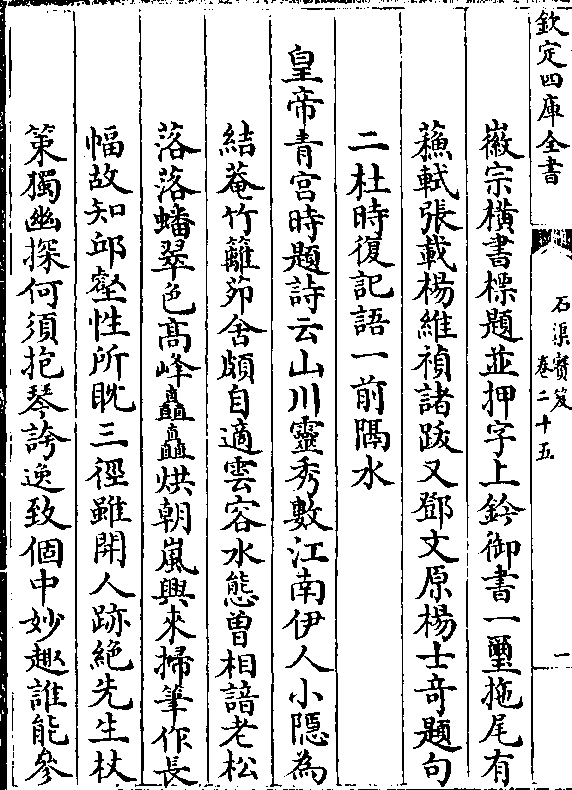 欽定四庫全書
石渠寶笈
卷二十五
一
徽宗橫書標題並押字上鈐御書一璽拖尾有
蘓軾張載楊維禎諸跋又鄧文原楊士竒題句
二杜時復記語一前隔水
皇帝青宮時題詩云山川靈秀數江南伊人小隠為
結菴竹籬茆舍頗自適雲容水態曽相諳老松
落落蟠翠色髙峰矗矗烘朝嵐興來掃筆作長
幅故知邱壑性所躭三徑雖開人跡絶先生杖
策獨幽探何須抱琴誇逸致個中妙趣誰能參